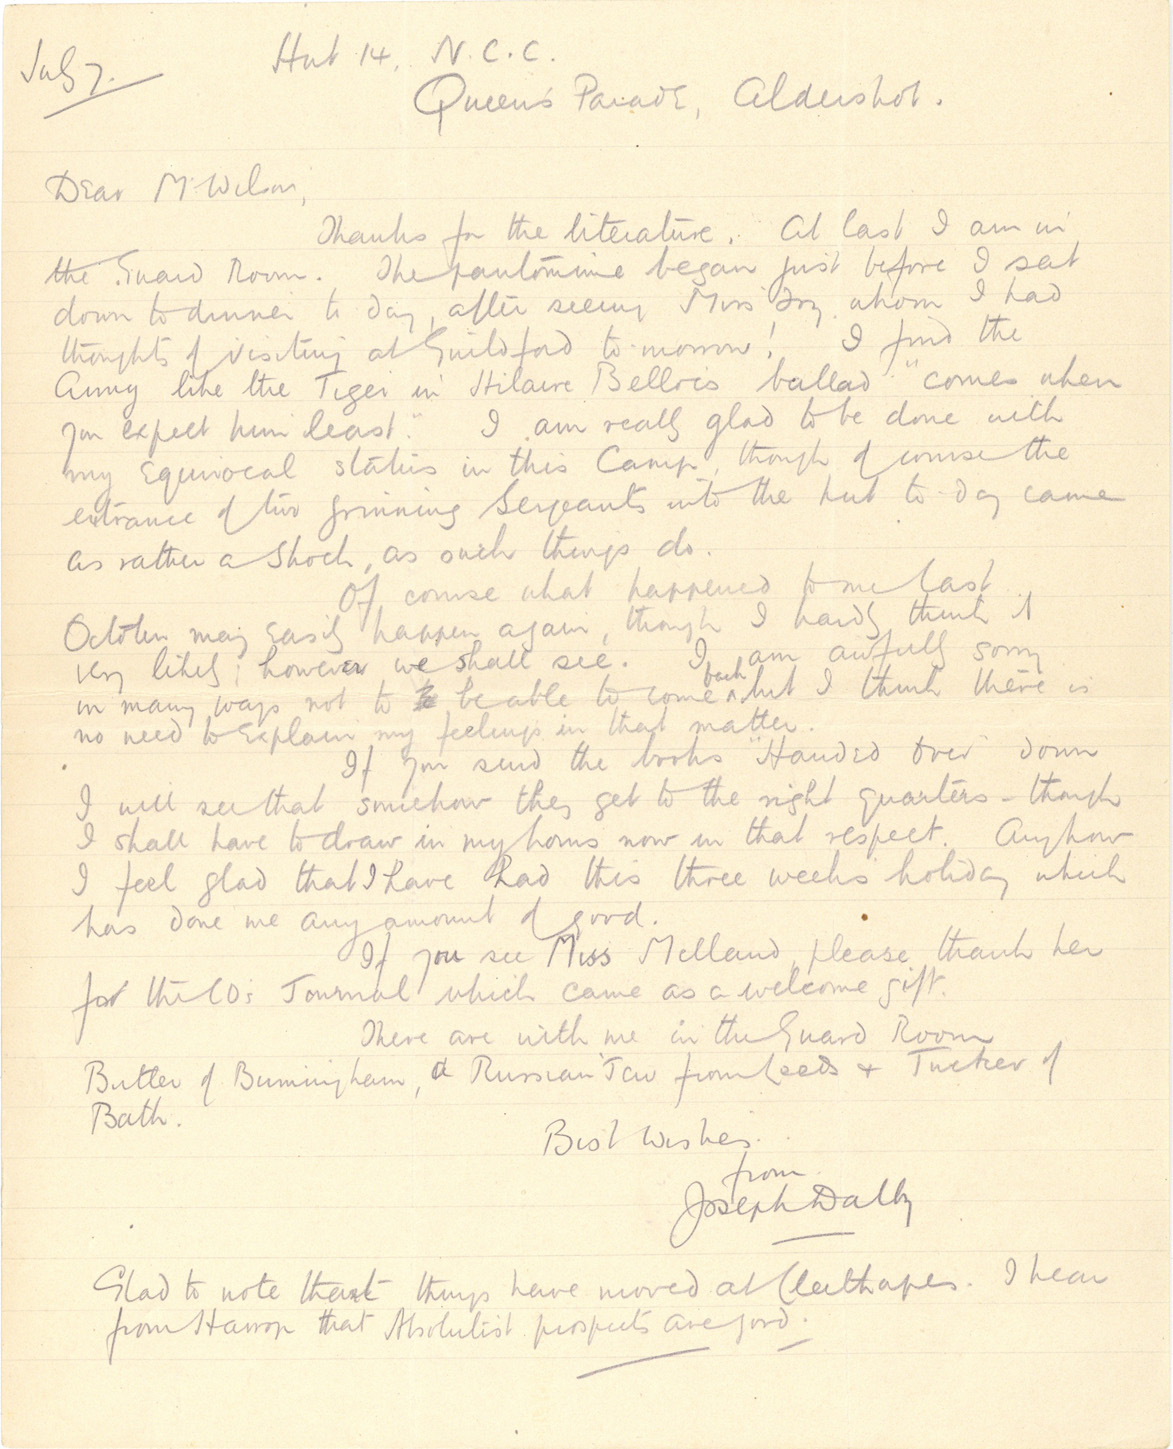 July 7.
Hut 14, N.C.C.
Queen's Parade, Aldershot.
Dear Mr Wilson,
Thanks for the literature. At last I am in
the Guard Room. The pantomime began just before I sat
down to dinner to day, after seeing Miss Fry whom I had
thoughts of visiting at Guildford to-morrow! I find the
Army like the Tiger in Hilaire Bellocs ballad "comes when
you expect him least." I am really glad to be done with
my equivocal status in this Camp, though of course the
entrance of two grinning Sergeants into the hut to-day came
as rather a shock, as such things do.
Of course what happened to me last
October may easily happen again, though I hardly think it
very likely; however we shall see. I am awfully sorry
in many ways not to be able to come back but I think there is
no need to explain my feelings in that matter.
If you send the books "Handed Over" down
I will see that somehow they get to the right quarters - though
I shall have to draw in my horns now in that respect. Anyhow
I feel glad that I have had this three weeks holiday which
has done me any amount of good.
If you see Miss Melland, please thank her
for the COs Journal which came as a welcome gift.
There are with me in the Guard Room
Butler of Birmingham, a Russian Jew from Leeds & Tucker of
Bath.
Best Wishes.
from
Joseph Dalby
Glad to note that things have moved at Cleethorpes. I hear
from Harrop that Absolutist prospects are good.